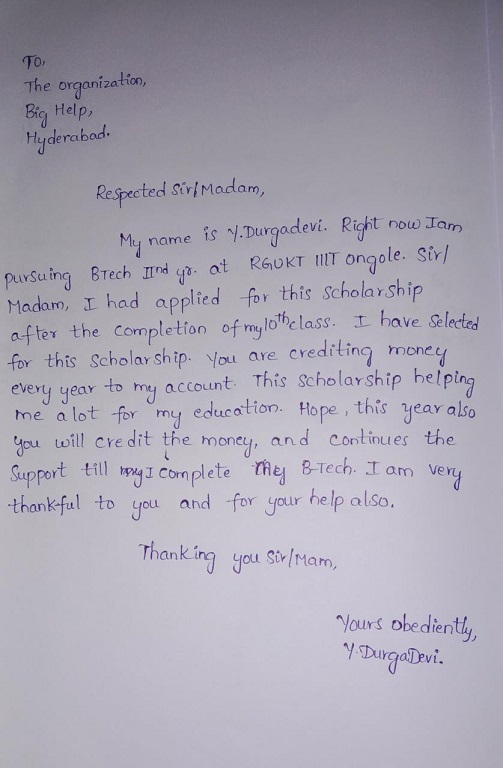 To,
The organization,
Big Help,
Hyderabad.
Respected Sir/Madam,
My name is Y.Durgadevi. Right now Iam
pursuing BTech IInd yr. at RGUKT IIIT ongole. Sir/
Madam, I had applied for this Scholarship
after the completion of my10th class. I have Selected
for this Scholarship. You are crediting money
every year to my account. This Scholarship helping
me a lot for my education. Hope, this year also
you will credit the money, and continues the
Support till I complete my B-Tech. I am very
thankful to you and for your help also.
Thanking you Sir/Mam,
Yours obediently,
Y.DurgaDevi.